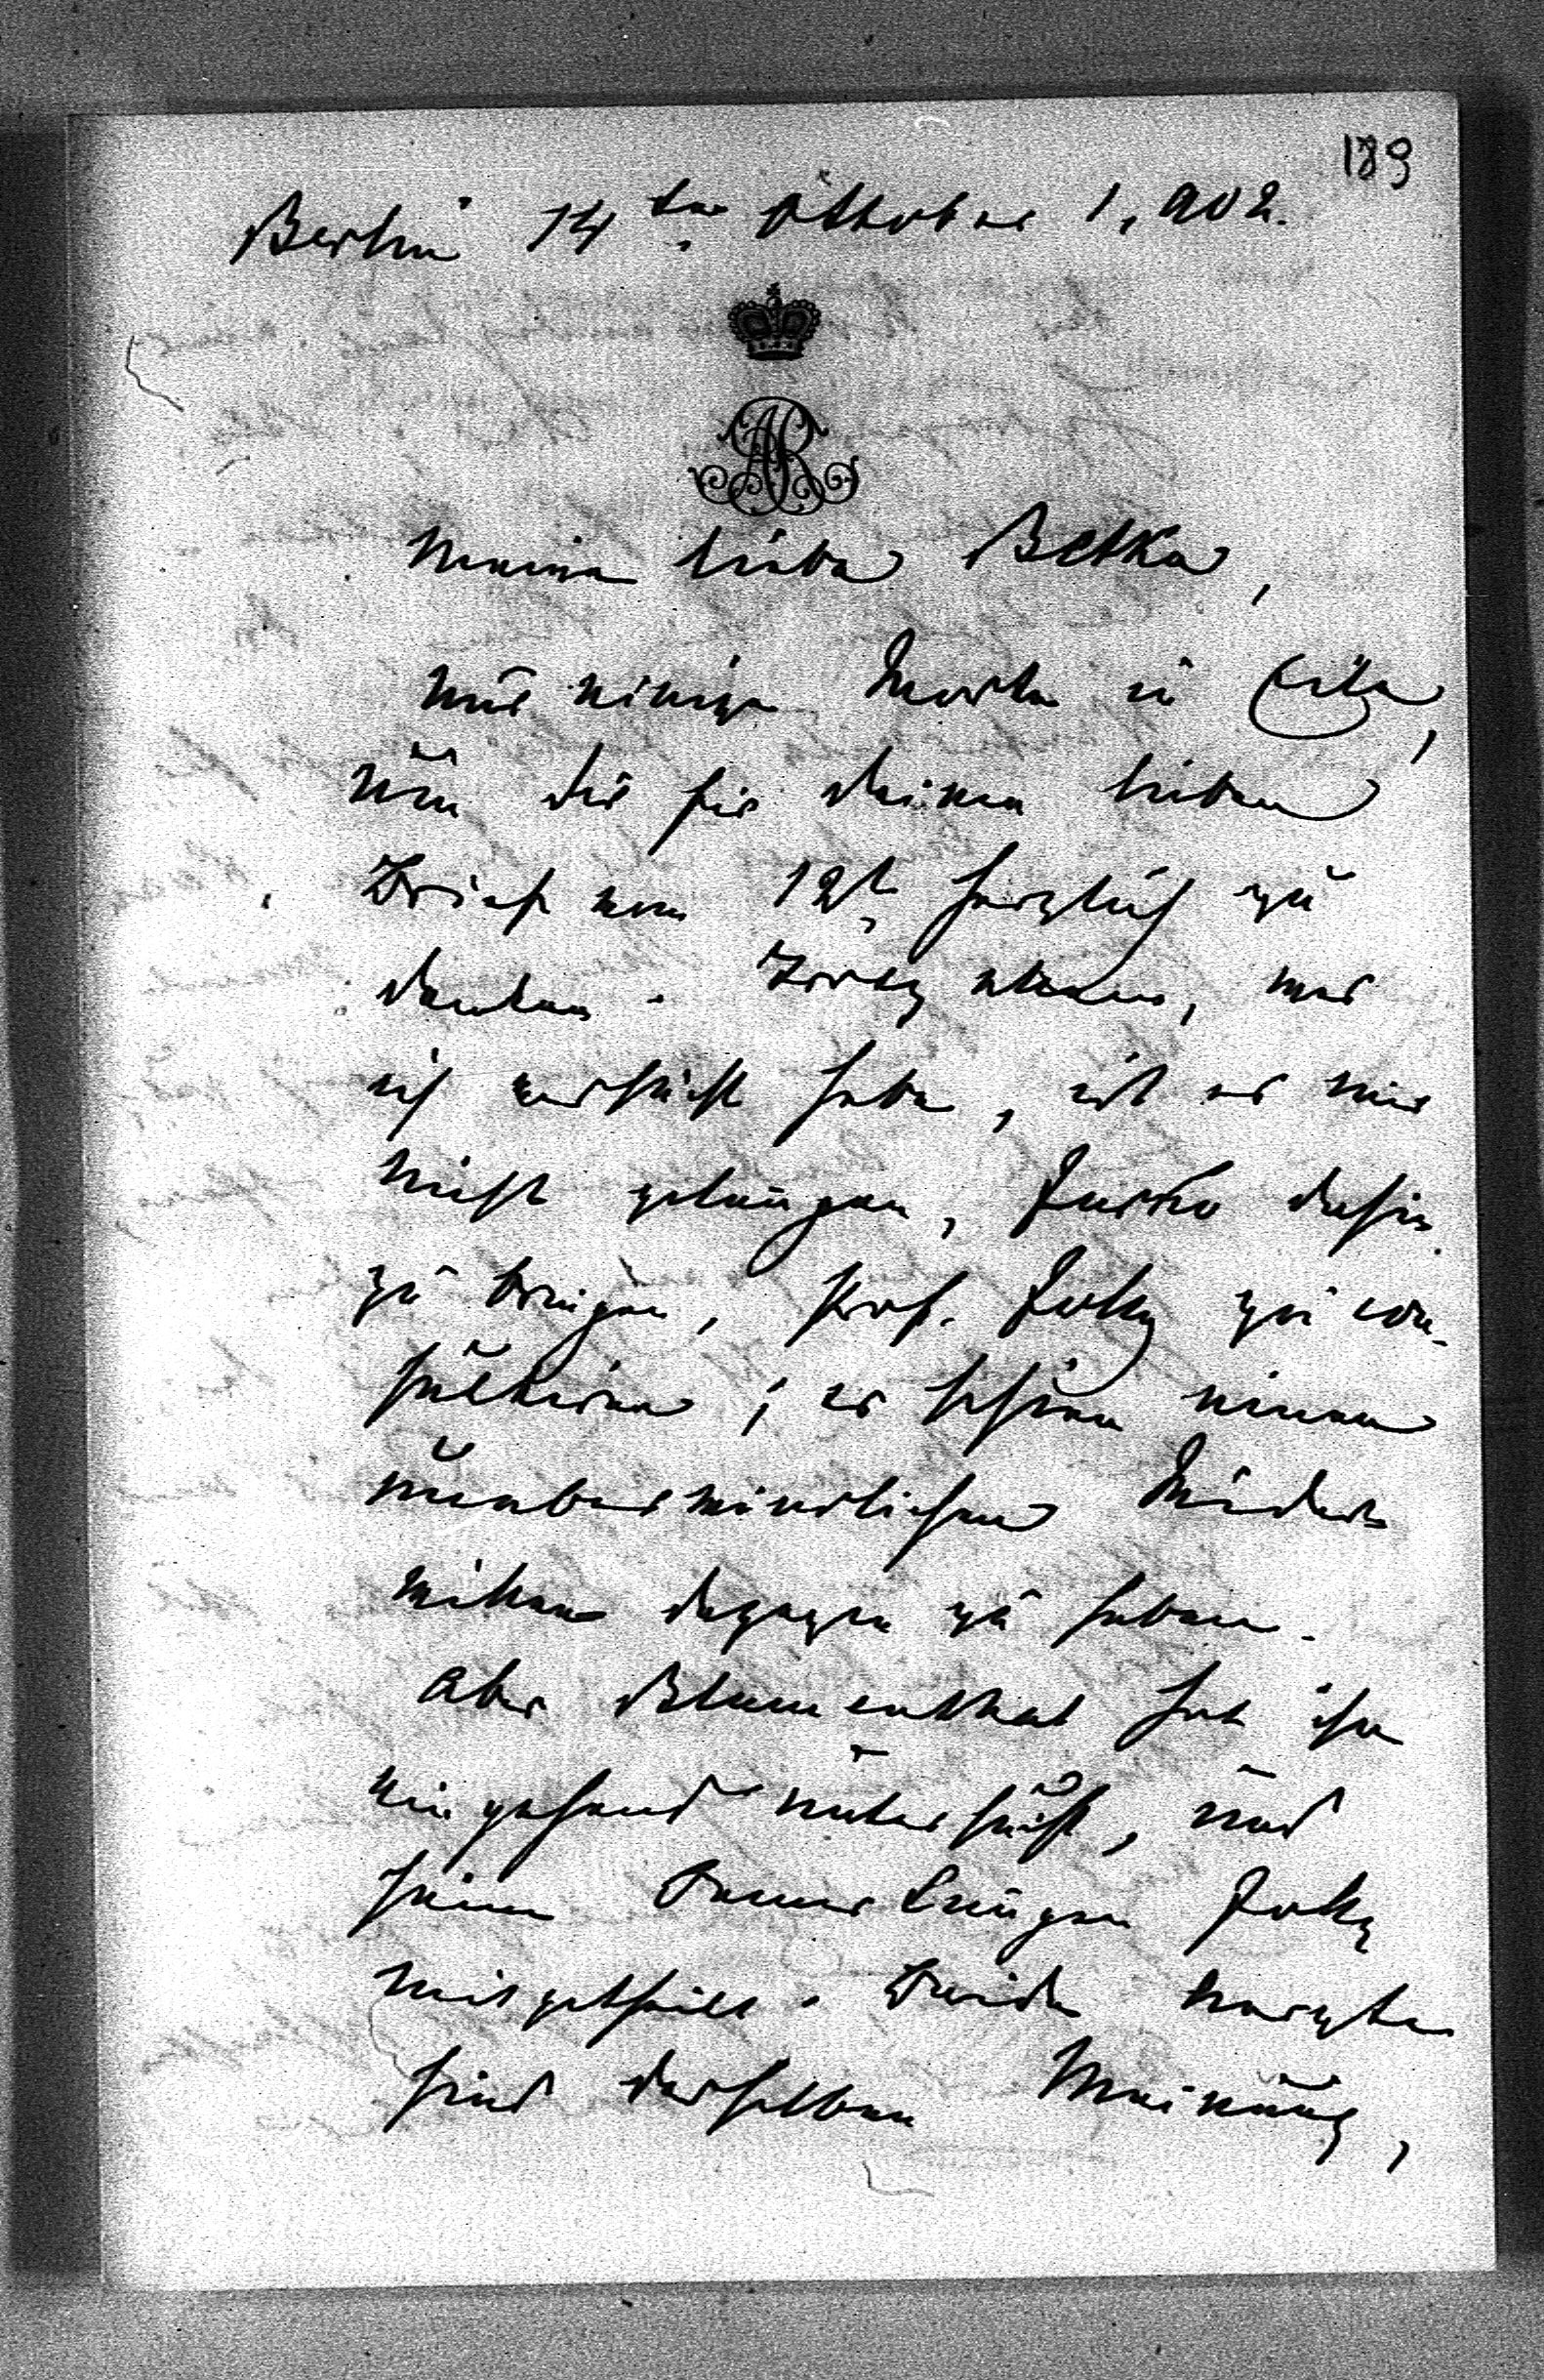 189
Berlin 14ten Oktober 1,902.
AR
Meine liebe Betka,
nur einige Worte in Eile,
um dir für deinen lieben
Brief vom 12t. herzlich zu
danken. Trotz allem, was
ich versucht habe, ist es mir
nicht gelungen, Jusso dahin
zu bringen, Prof. Jolly zu con-
sultiren; er schien einen
unüberwindlichen Wieder-
willen dagegen zu haben.
Aber Blumenthal hat ihn
eingehend untersucht, und
seine Bemerkungen Jolly
mitgetheilt. Beide Aerzte
sind derselben Meinung,